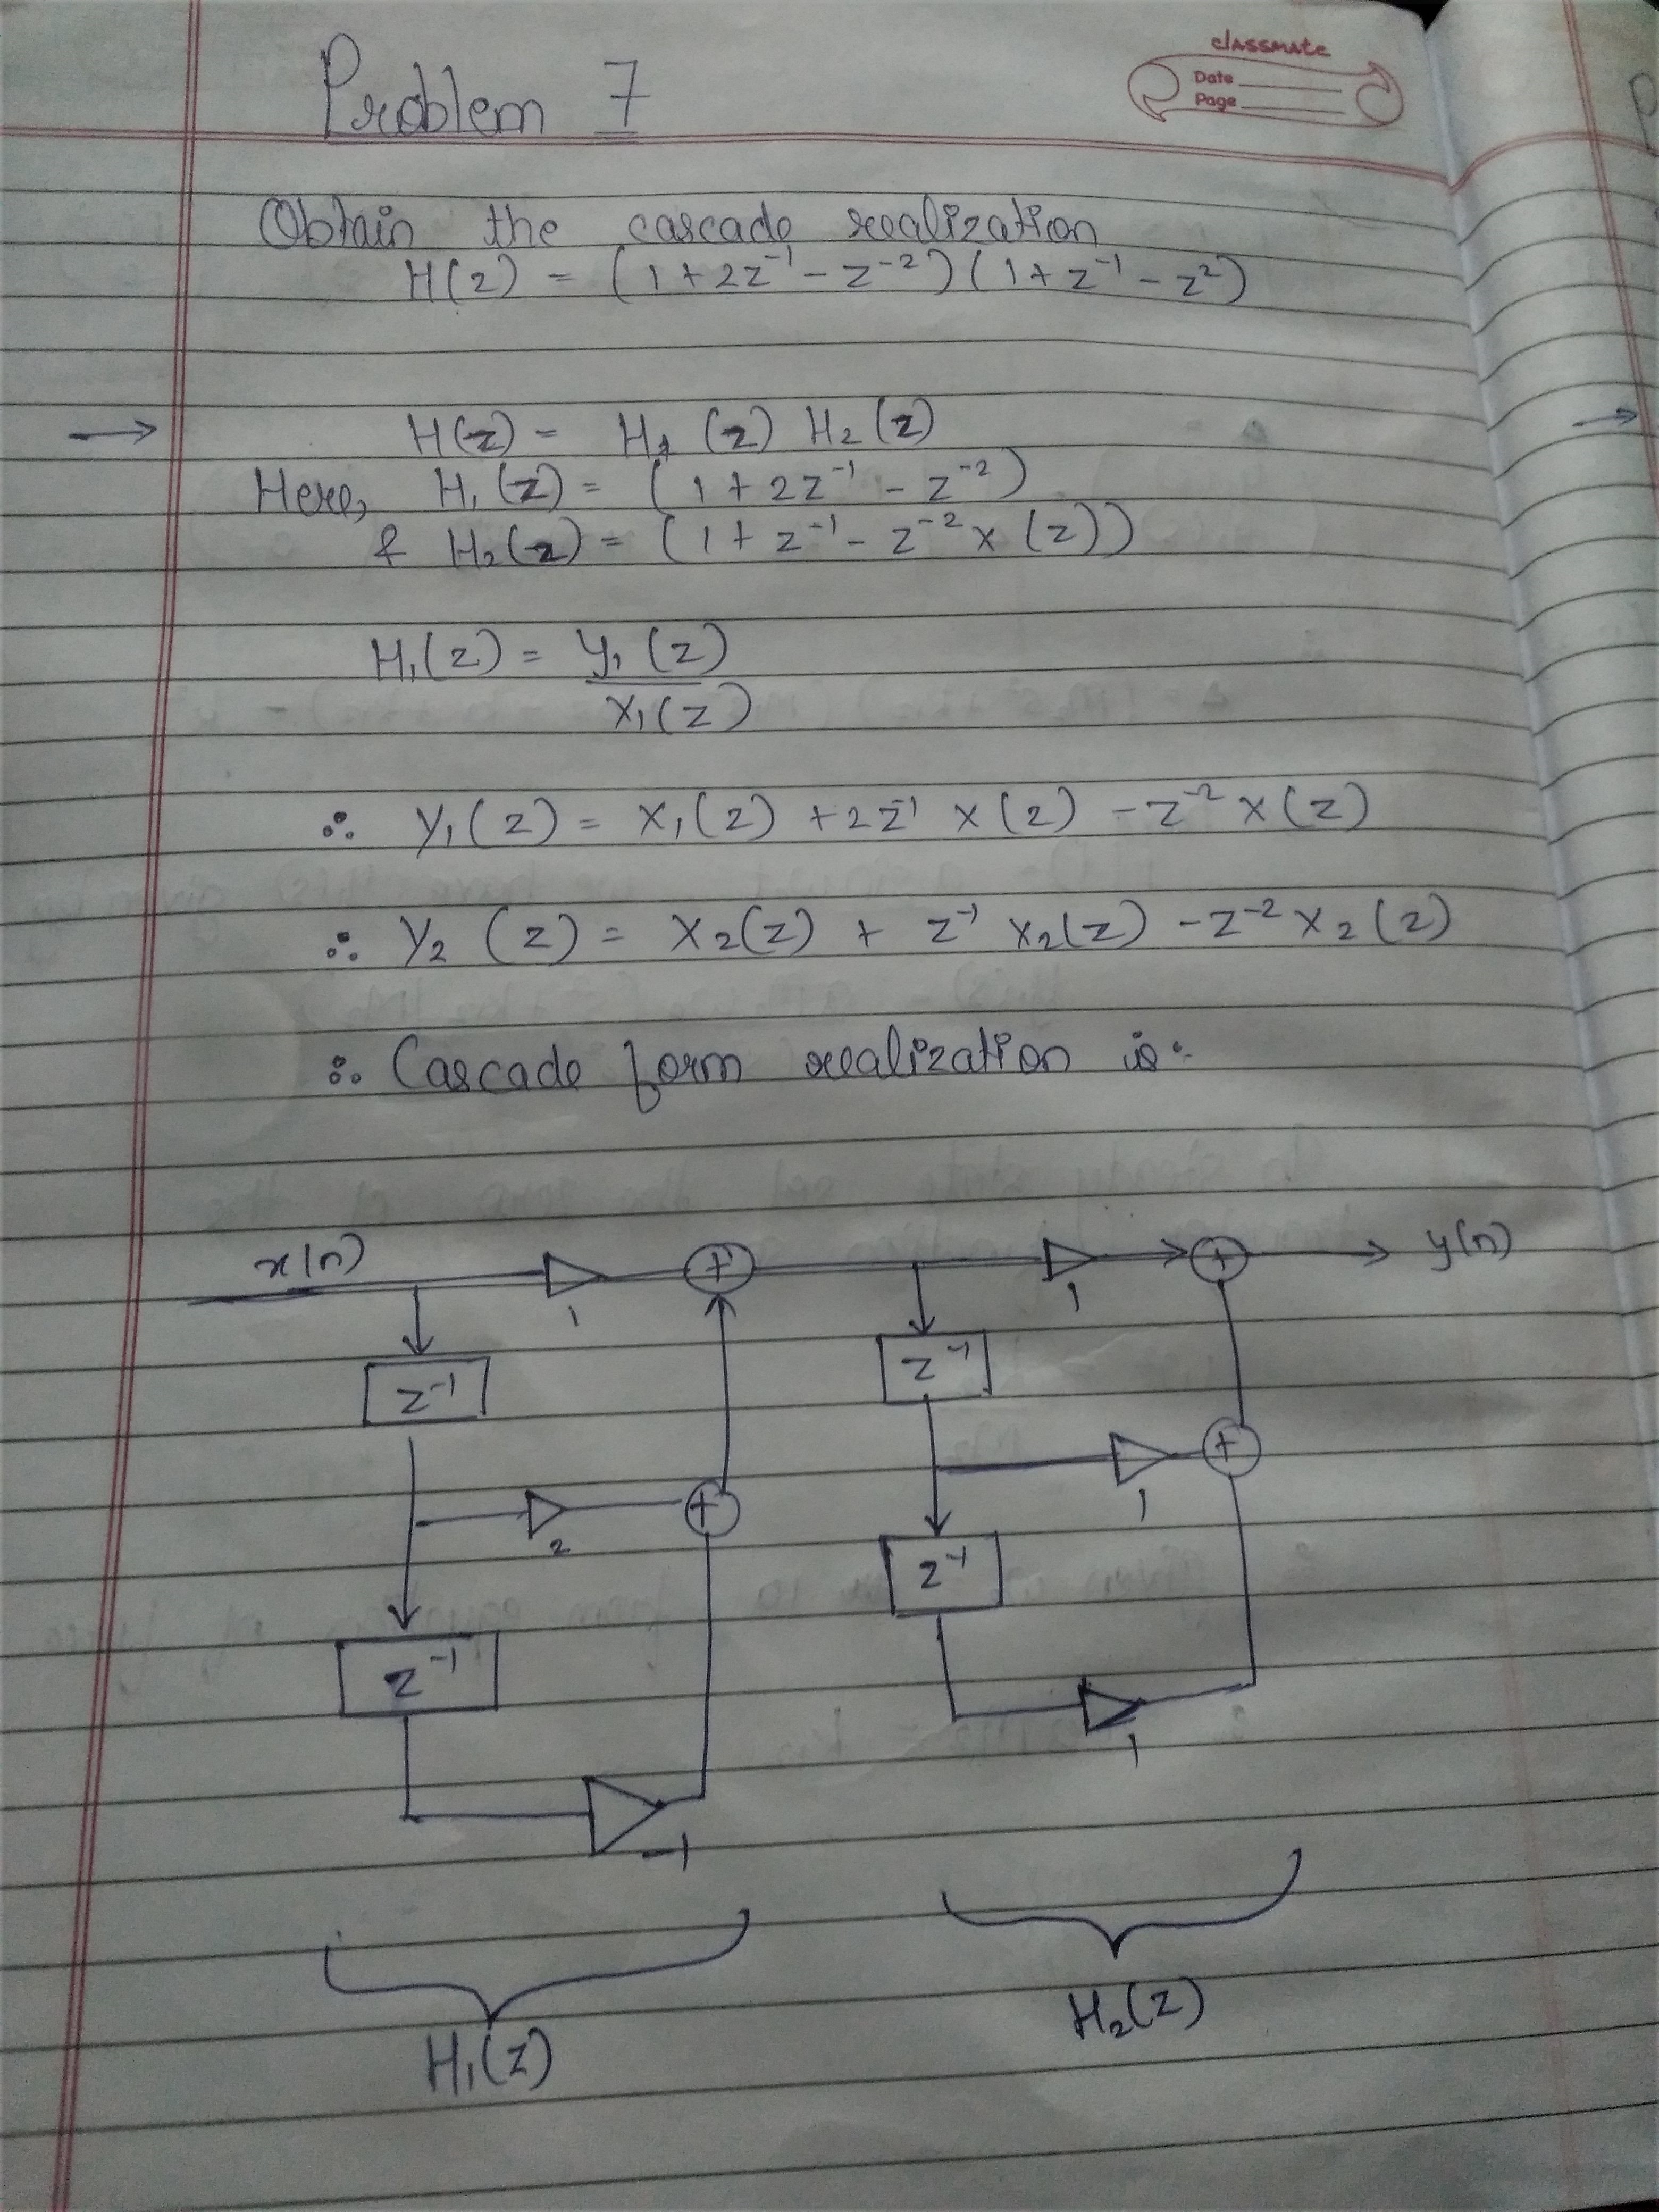 classmate
Date
Page
Problem 7
Obtain the cascade realization
H(z) = (1 + 2z⁻¹ - z⁻²)(1 + z⁻¹ - z²)
→ H(z) = H₁(z) H₂(z)
Here, H₁(z) = (1 + 2z⁻¹ - z⁻²)
& H₂(z) = (1 + z⁻¹ - z⁻² x(z))
H₁(z) = Y₁(z)
X₁(z)
∴ Y₁(z) = X₁(z) + 2z⁻¹ X(z) - z⁻² X(z)
∴ Y₂(z) = X₂(z) + z⁻¹ X₂(z) - z⁻² X₂(z)
∴ Cascade form realization is:
x(n) 1 + 1 + y(n)
z⁻¹ z⁻¹
2 + 1 +
z⁻¹ z⁻¹
-1 1
H₁(z) H₂(z)